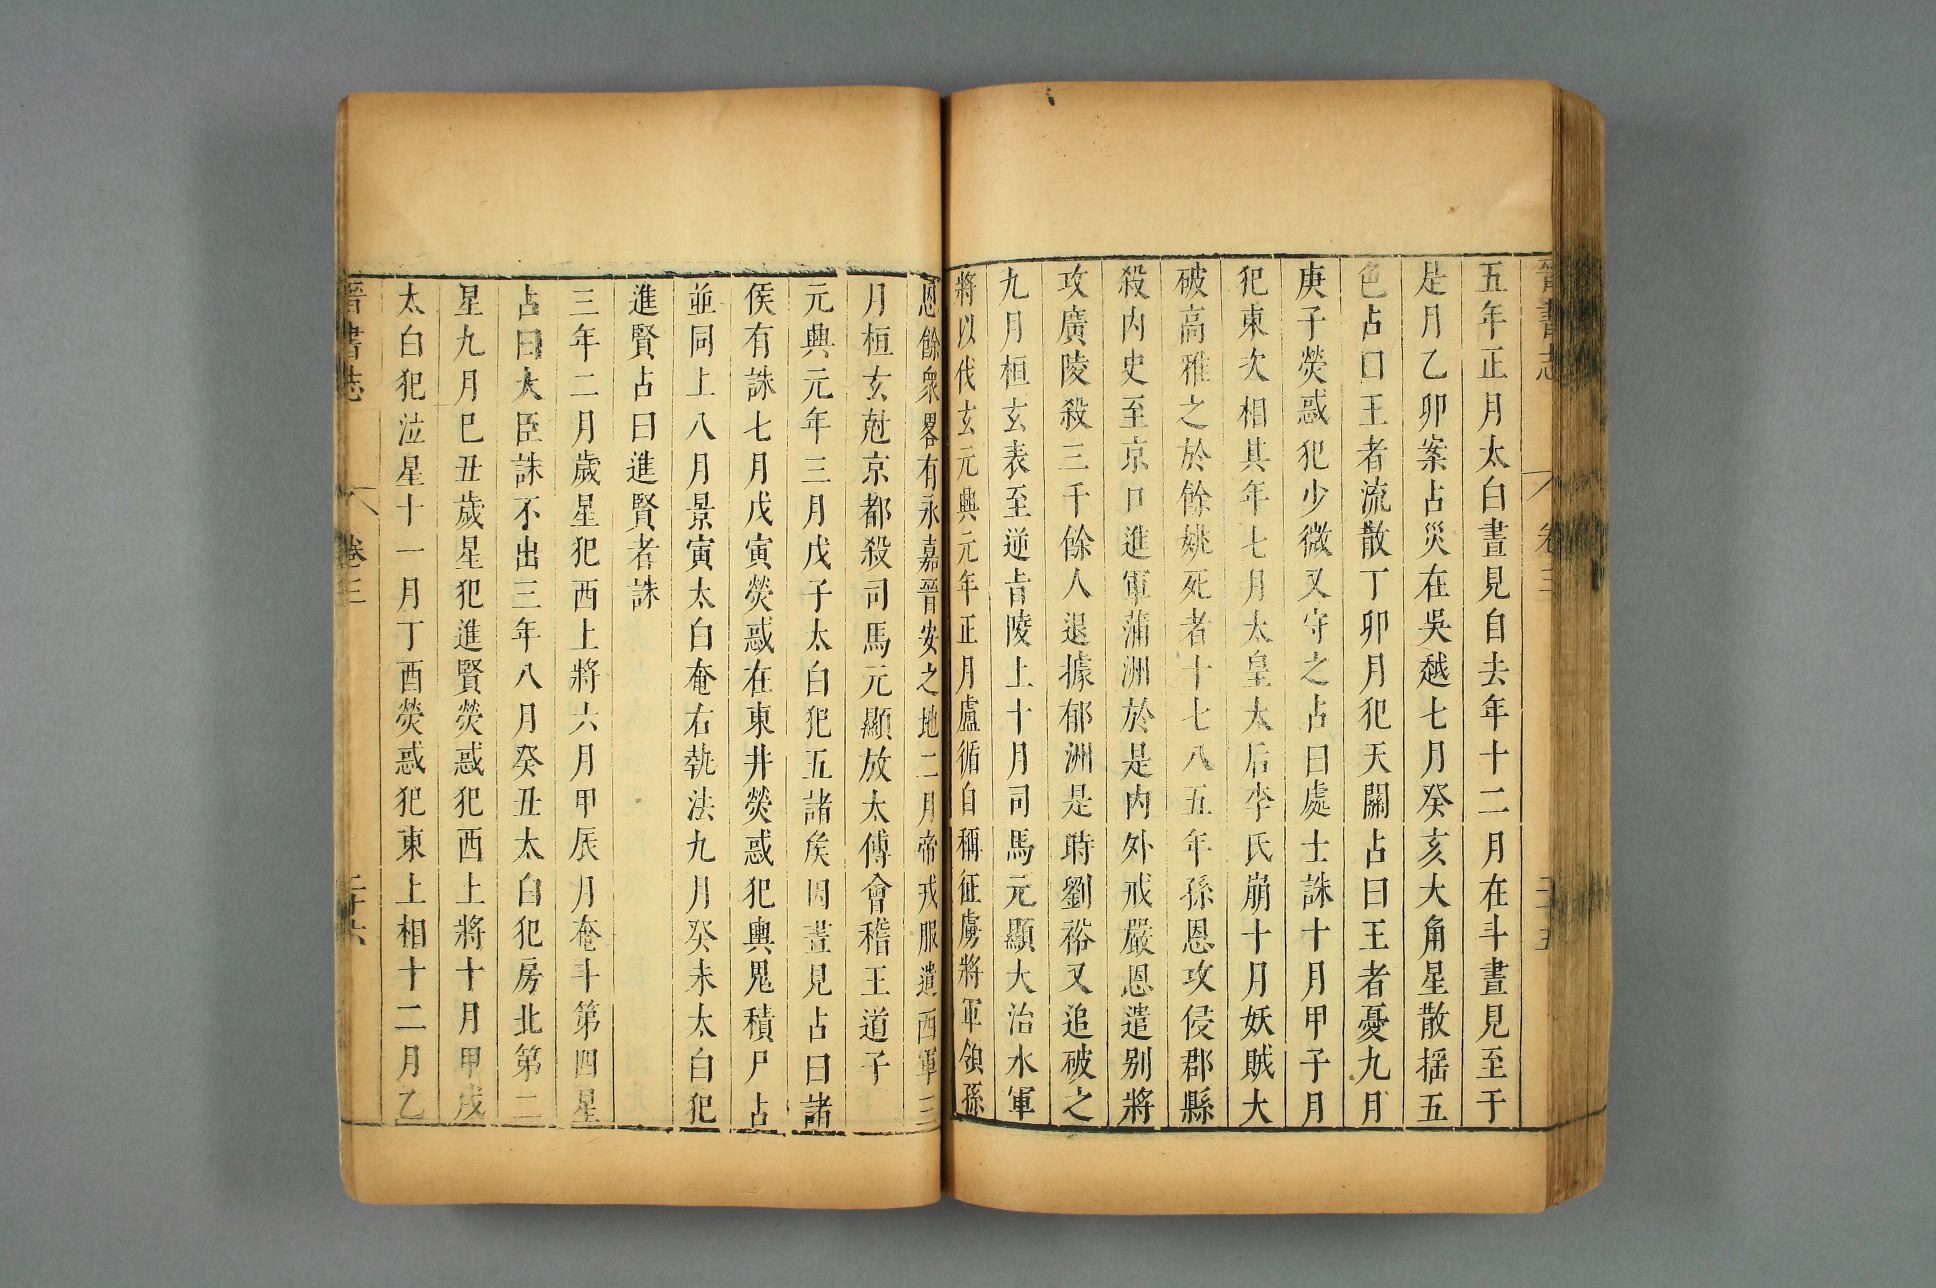 晉書志 卷三 三十五
五年正月太白晝見自去年十二月在斗晝見至于
是月乙卯案占災在吳越七月癸亥大角星散搖五
色占曰王者流散丁卯月犯天關占曰王者憂九月
庚子熒惑犯少微又守之占曰處士誅十月甲子月
犯東次相其年七月太皇太后李氏崩十月妖賊大
破高雅之於餘姚死者十七八五年孫恩攻侵郡縣
殺內史至京口進軍蒲洲於是內外戒嚴恩遣别將
攻廣陵殺三千餘人退據郁洲是時劉裕又追破之
九月桓玄表至逆旨陵上十月司馬元顯大治水軍
將以伐玄元興元年正月盧循自稱征虜將軍領孫
恩餘衆畧有永嘉晉安之地二月帝戎服遣西軍三
月桓玄尅京都殺司馬元顯放太傅會稽王道子
元興元年三月戊子太白犯五諸侯因晝見占曰諸
侯有誅七月戊寅熒惑在東井熒惑犯輿鬼積尸占
並同上八月景寅太白奄右執法九月癸未太白犯
進賢占曰進賢者誅
三年二月歲星犯西上將六月甲辰月奄斗第四星
占曰大臣誅不出三年八月癸丑太白犯房北第二
星九月己丑歲星犯進賢熒惑犯西上將十月甲戌
太白犯泣星十一月丁酉熒惑犯東上相十二月乙
晉書志 卷三 三十六